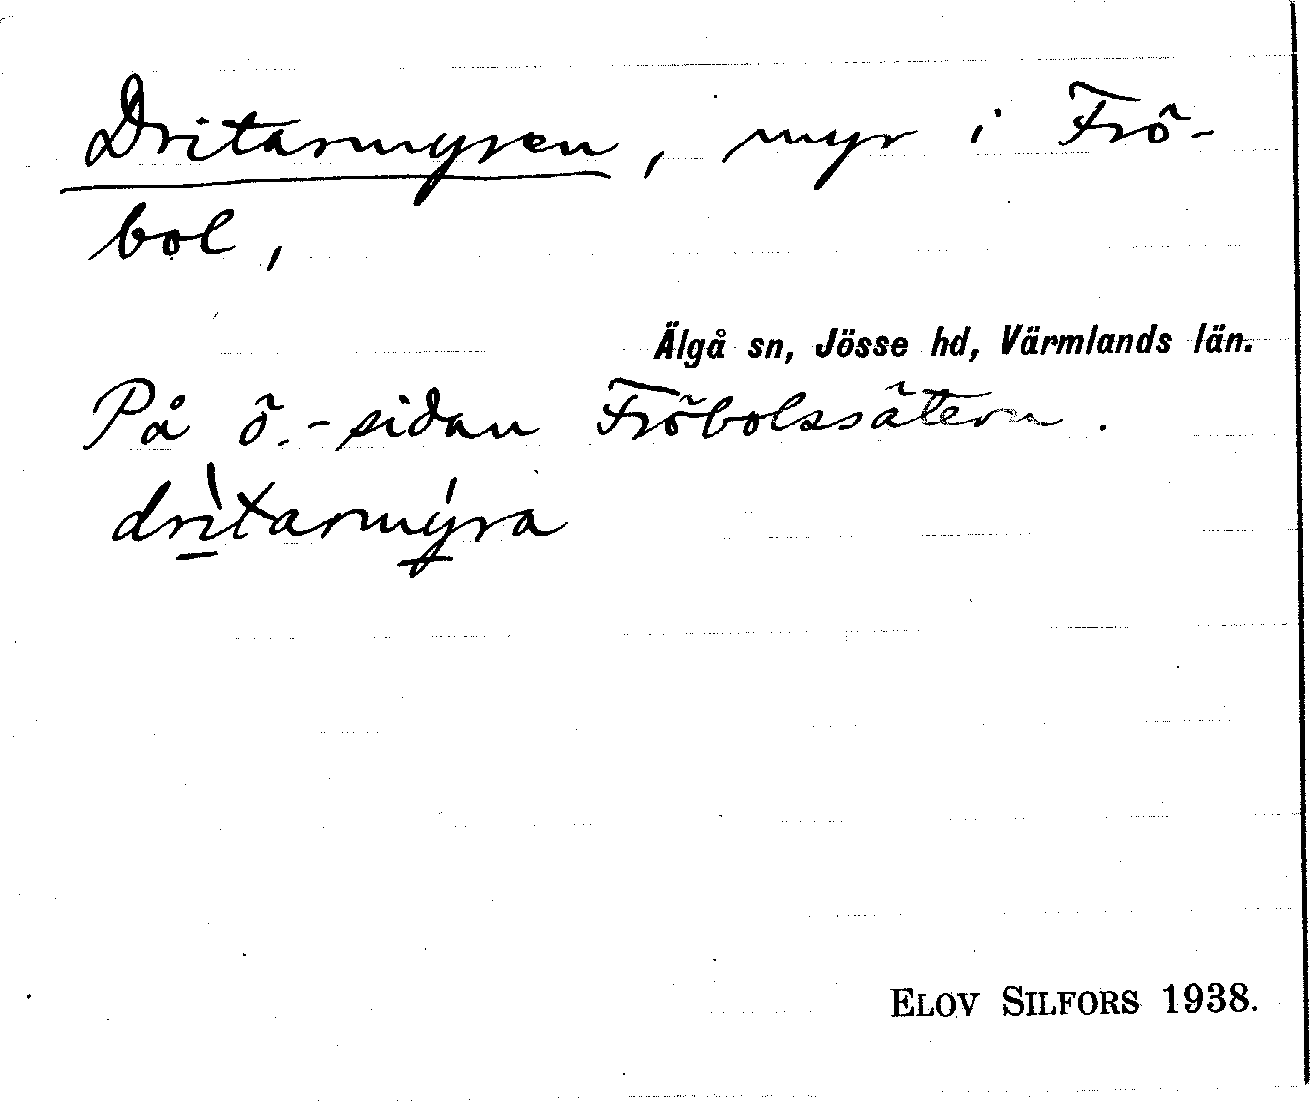 Dritarmyren, myr i Frö-
bol,
Älgå sn, Jösse hd, Värmlands län.
På ö.-sidan Fröbolssätern.
drì̱tarmý̱ra
ELOV SILFORS 1938.